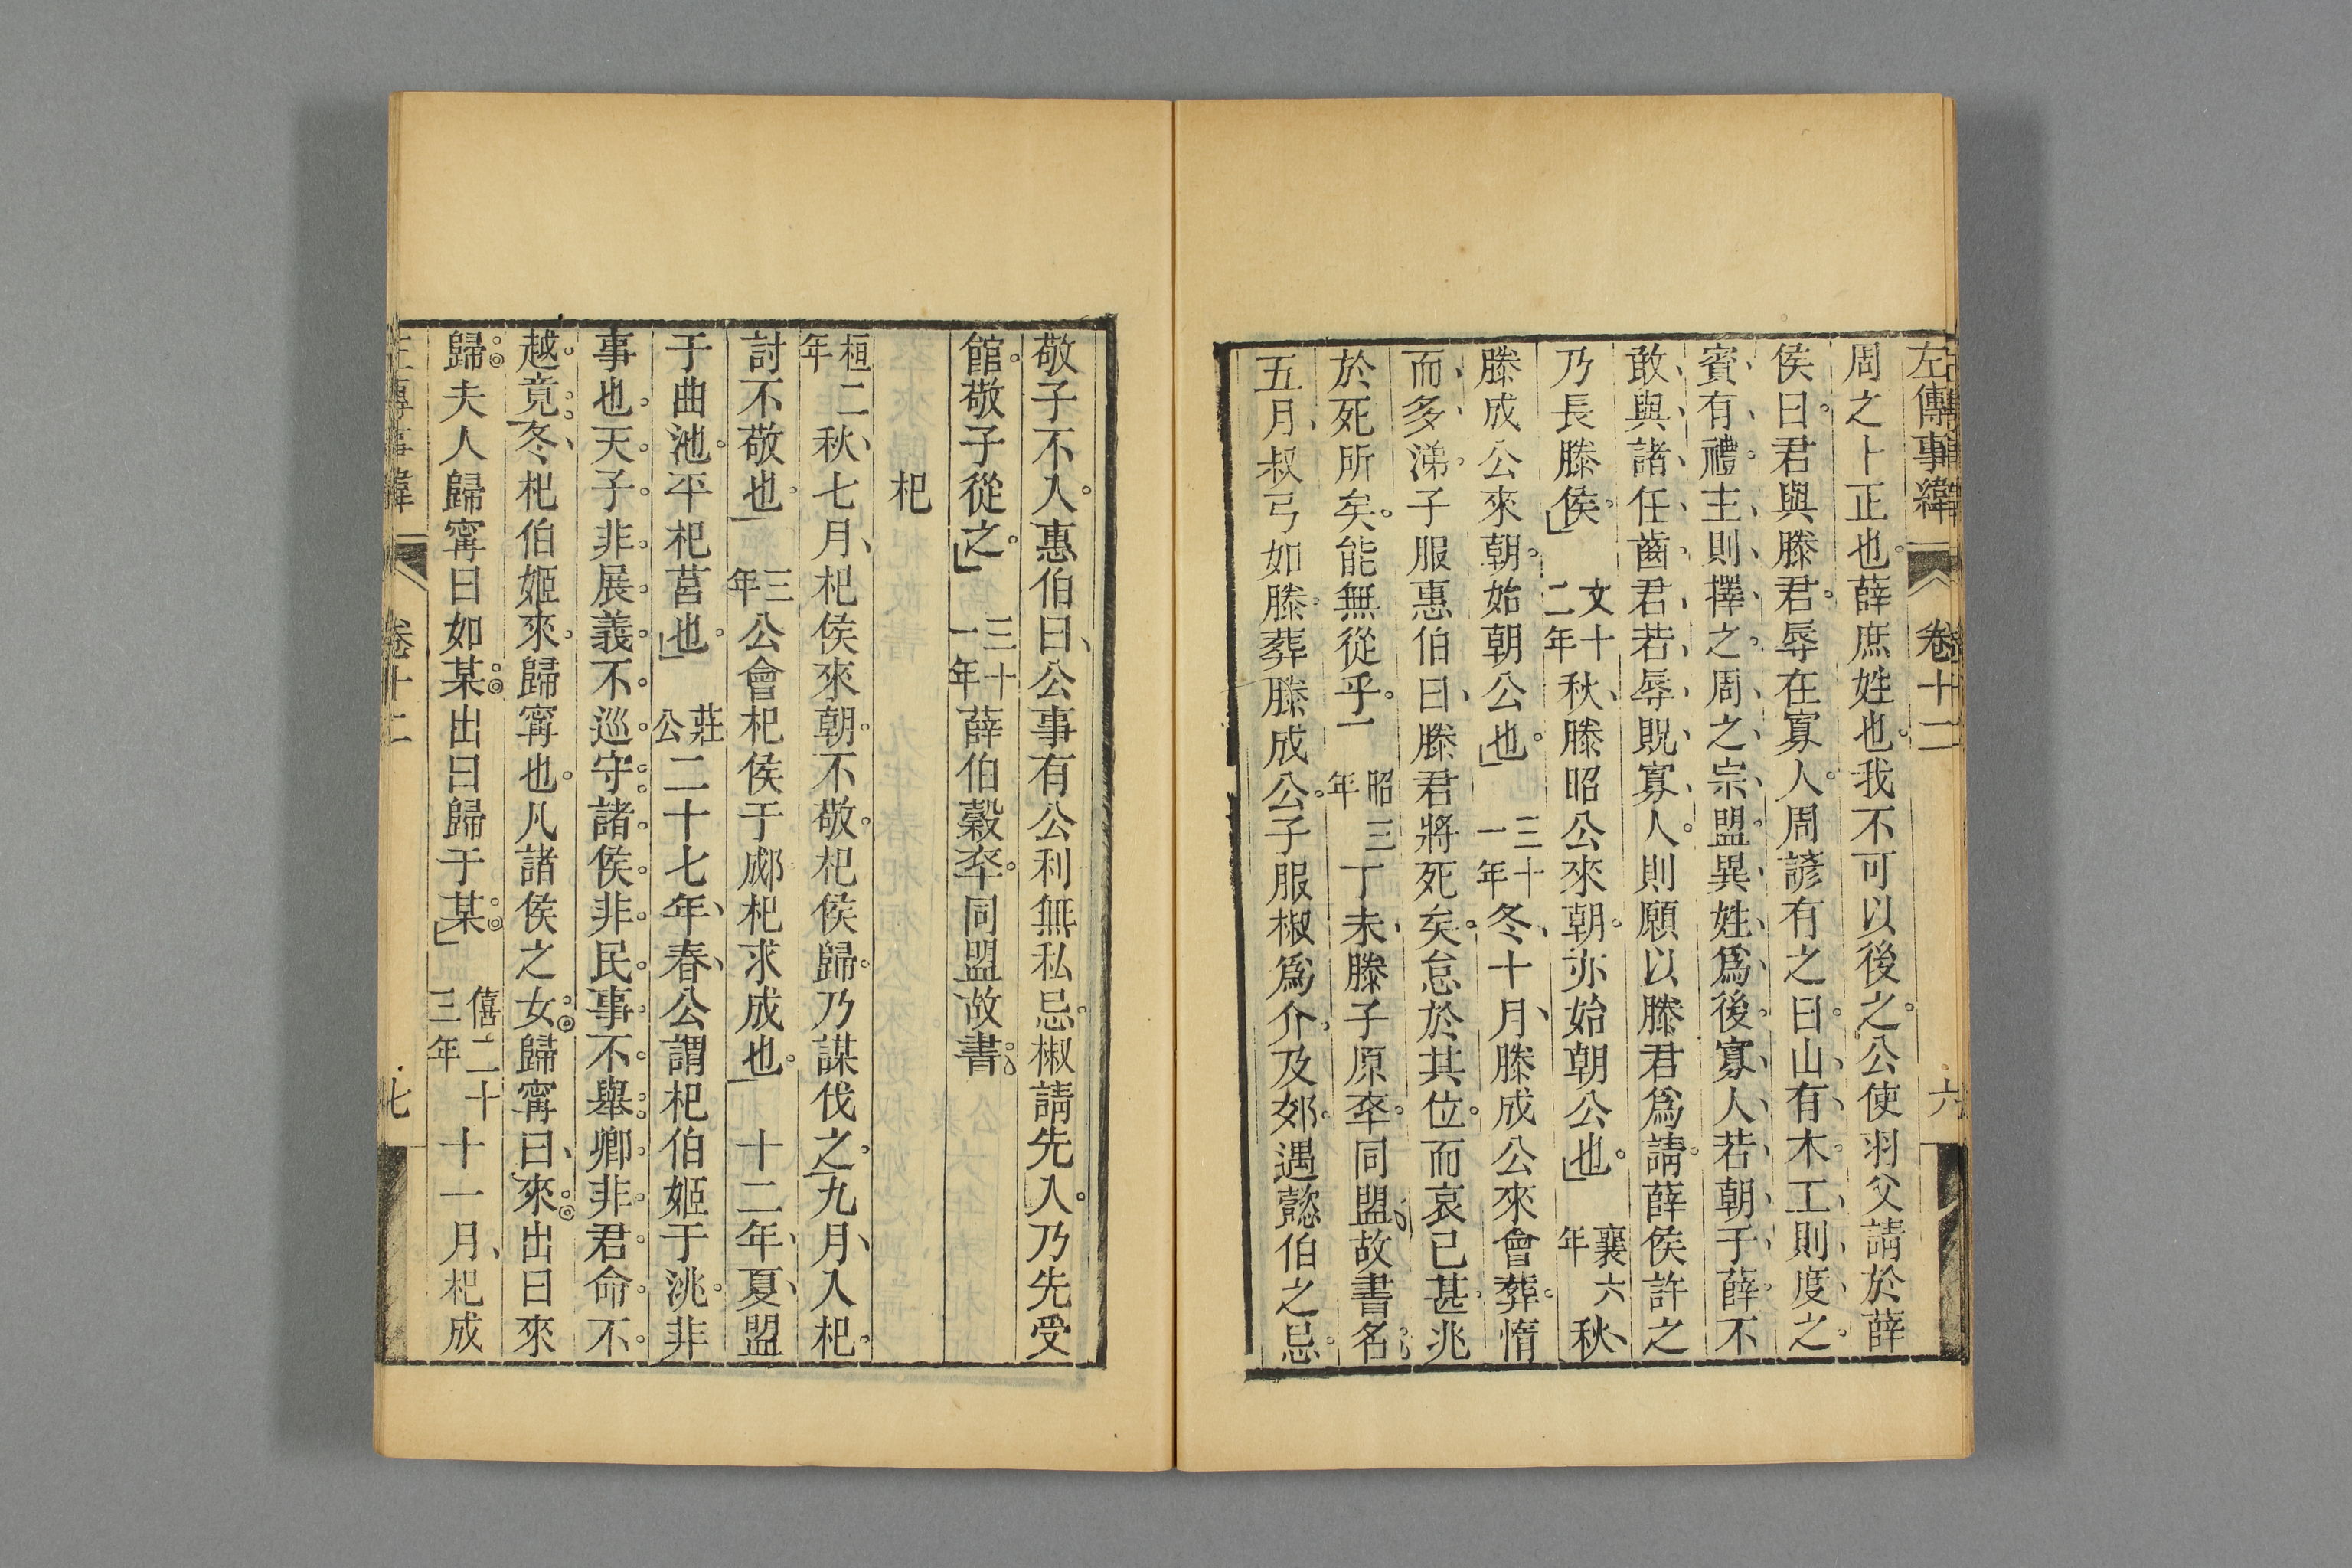 左傳事緯 卷十二 六
周之卜正也薛庶姓也我不可以後之公使羽父請於薛
侯曰君與滕君辱在寡人周諺有之曰山有木工則度之
賓有禮主則擇之周之宗盟異姓爲後寡人若朝于薛不
敢與諸任齒君若辱貺寡人則願以滕君爲請薛侯許之
乃長滕侯 文十二年秋滕昭公來朝亦始朝公也 襄六年秋
滕成公來朝始朝公也 三十一年冬十月滕成公來會葬惰
而多涕子服惠伯曰滕君將死矣怠於其位而哀已甚兆
於死所矣能無從乎 昭三年丁未滕子原卒同盟故書名
五月叔弓如滕葬滕成公子服椒爲介及郊遇懿伯之忌
敬子不入惠伯曰公事有公利無私忌椒請先入乃先受
館敬子從之 三十一年薛伯穀卒同盟故書
杞
桓二年秋七月杞侯來朝不敬杞侯歸乃謀伐之九月入杞
討不敬也 三年公會杞侯于郕杞求成也 十二年夏盟
于曲池平杞莒也 莊公二十七年春公謂杞伯姬于洮非
事也天子非展義不巡守諸侯非民事不舉卿非君命不
越竟冬杞伯姬來歸寗也凡諸侯之女歸寗曰來出曰來
歸夫人歸寗曰如某出曰歸于某 僖二十三年十一月杞成
左傳事緯 卷十二 七